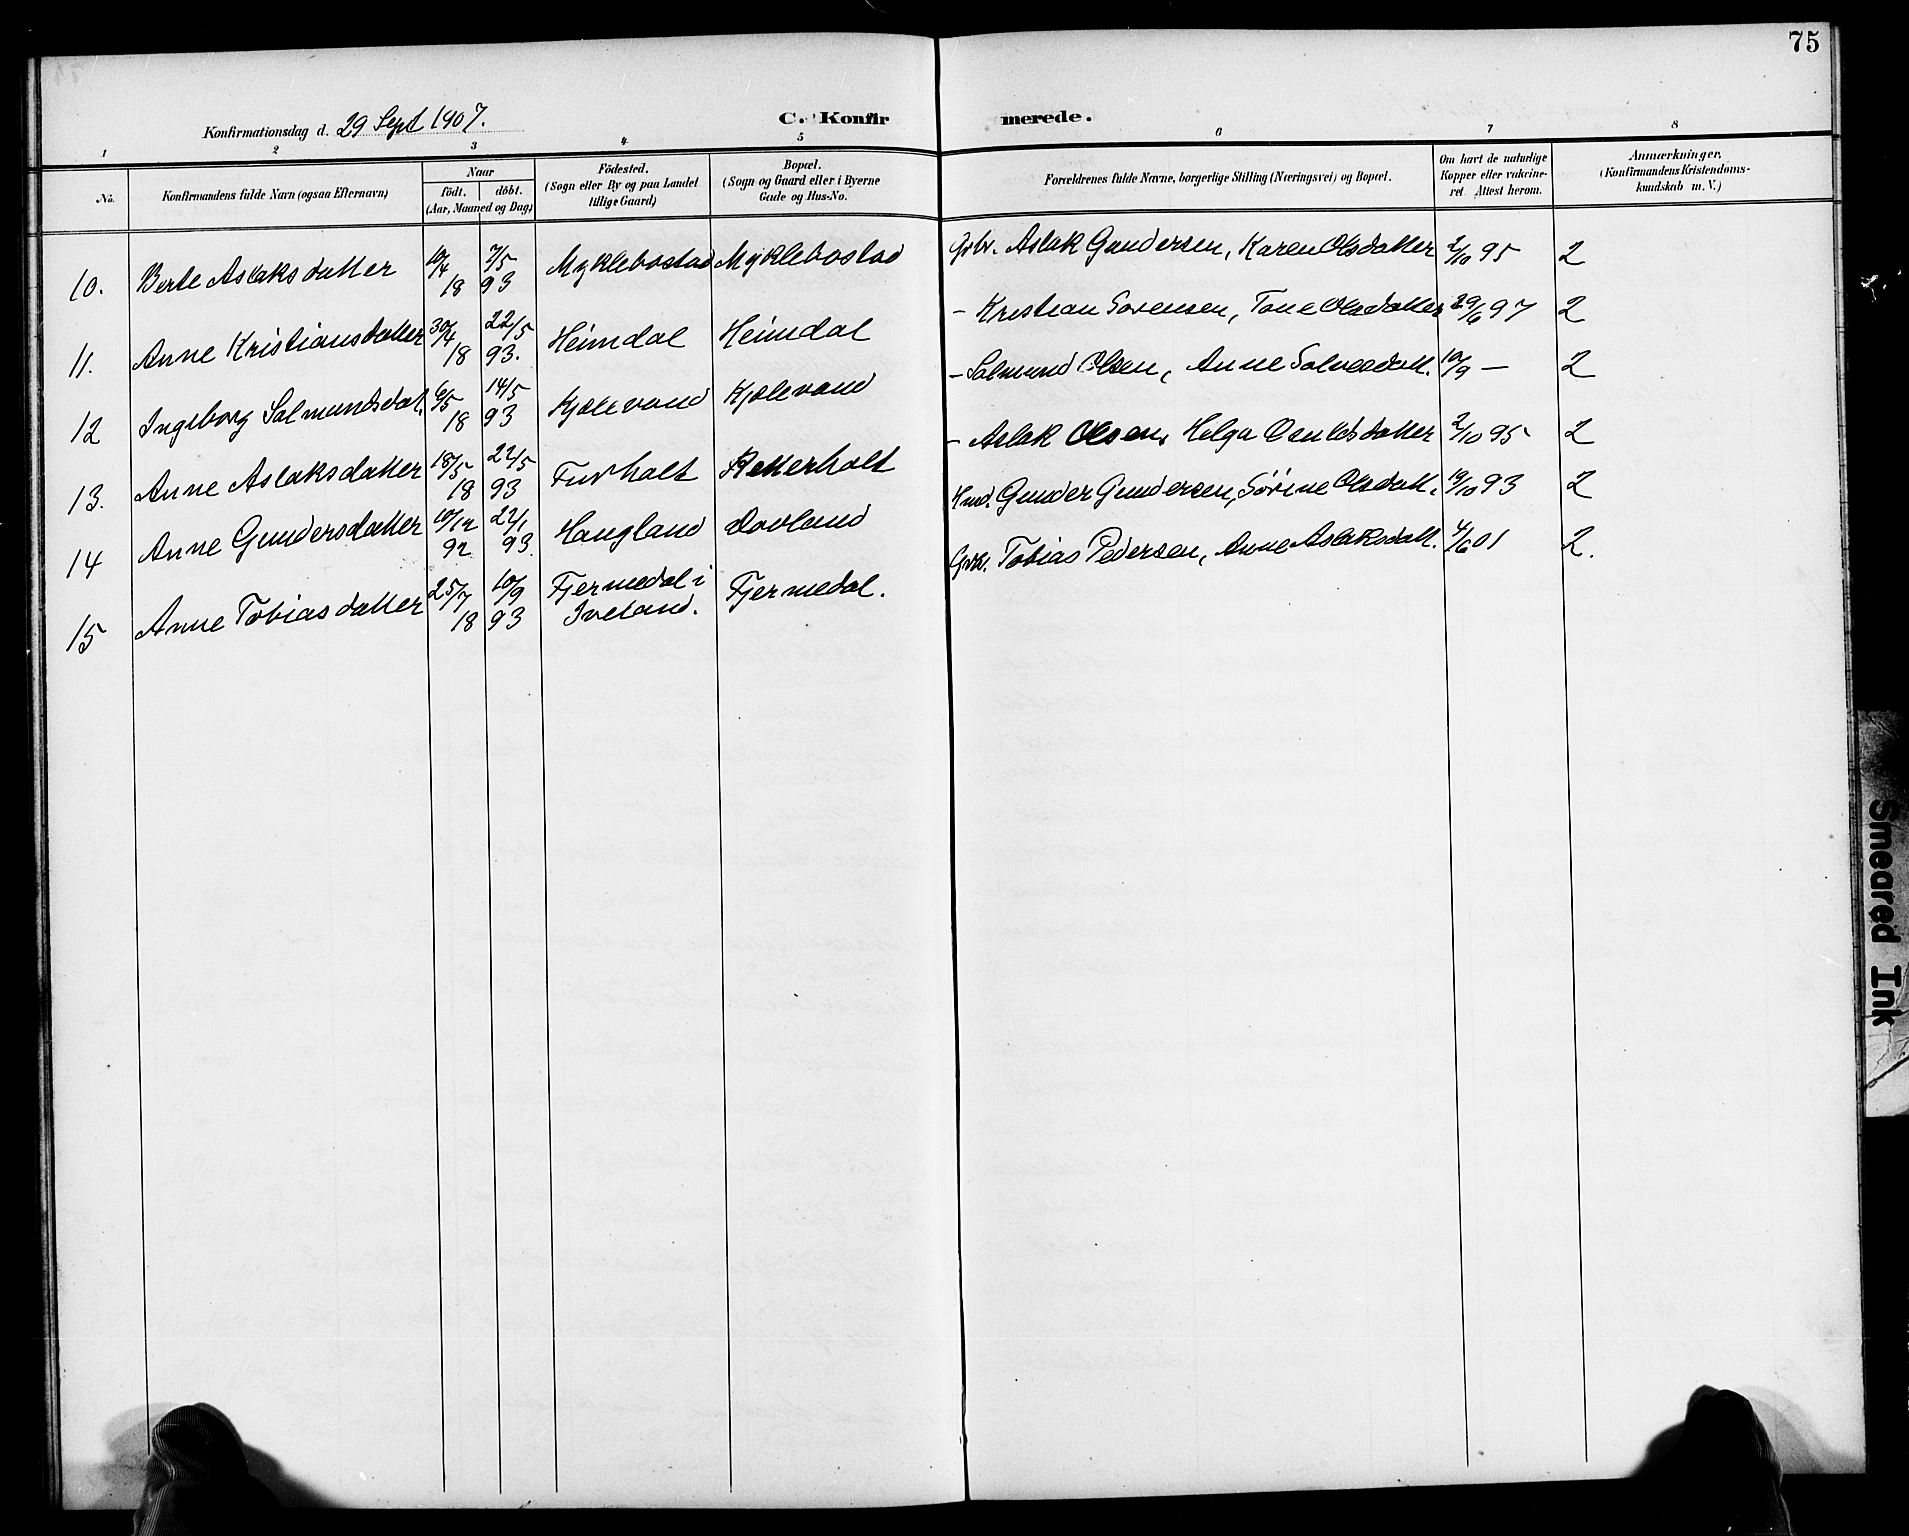 75
Konfirmationsdag d. 29 Sept 1907.
C. Konfirmerede.
1 2 3 4 5 6 7 8
No.
Konfirmandens fulde Navn (ogsaa Efternavn)
Naar
födt. döbt.
(Aar, Maaned og Dag)
Födested.
(Sogn eller By og paa Landet
tillige Gaard)
Bopæl.
(Sogn og Gaard eller i Byerne
Gade og Hus-No.
Forældrenes fulde Navne, borgerlige Stilling (Næringsvei) og Bopæl.
Om havt de naturlige
Kopper eller vakcine-
ret. Attest herom.
Anmærkninger,
(Konfirmandens Kristendoms-
kundskab m. V.)
10. Berte Aslaksdatter 10/4 18 7/5 93 Myklebostad Myklebostad Gbr. Aslak Gundersen, Karen Olsdatter 2/10 95 2
11. Anne Kristiansdatter 30/4 18 22/5 93. Heimdal Heimdal - Kristian Sorensen, Tone Olsdatter 29/6 97 2
12 Ingeborg Salmundsdat. 6/5 18 14/5 93 Kjølevand Kjølevand - Salmund Olsen, Anne Salvesdatt. 10/9 - 2
13. Anne Aslaksdatter 18/5 18 22/5 93 Furholt Røkkerholt - Aslak Olsen, Helga Osuldsdatter 2/10 95 2
14 Anne Gundersdatter 10/12 92 22/1 93. Haugland Dovland Hmd. Gunder Gundersen, Sørine Olsdatt. 19/10 93 2
15 Anne Tobiasdatter 25/7 18 10/9 93 Fjermedal i Iveland. Fjermedal. Gbr. Tobias Pedersen, Anne Aslaksdatt. 4/6 01 2.
Smeared Ink